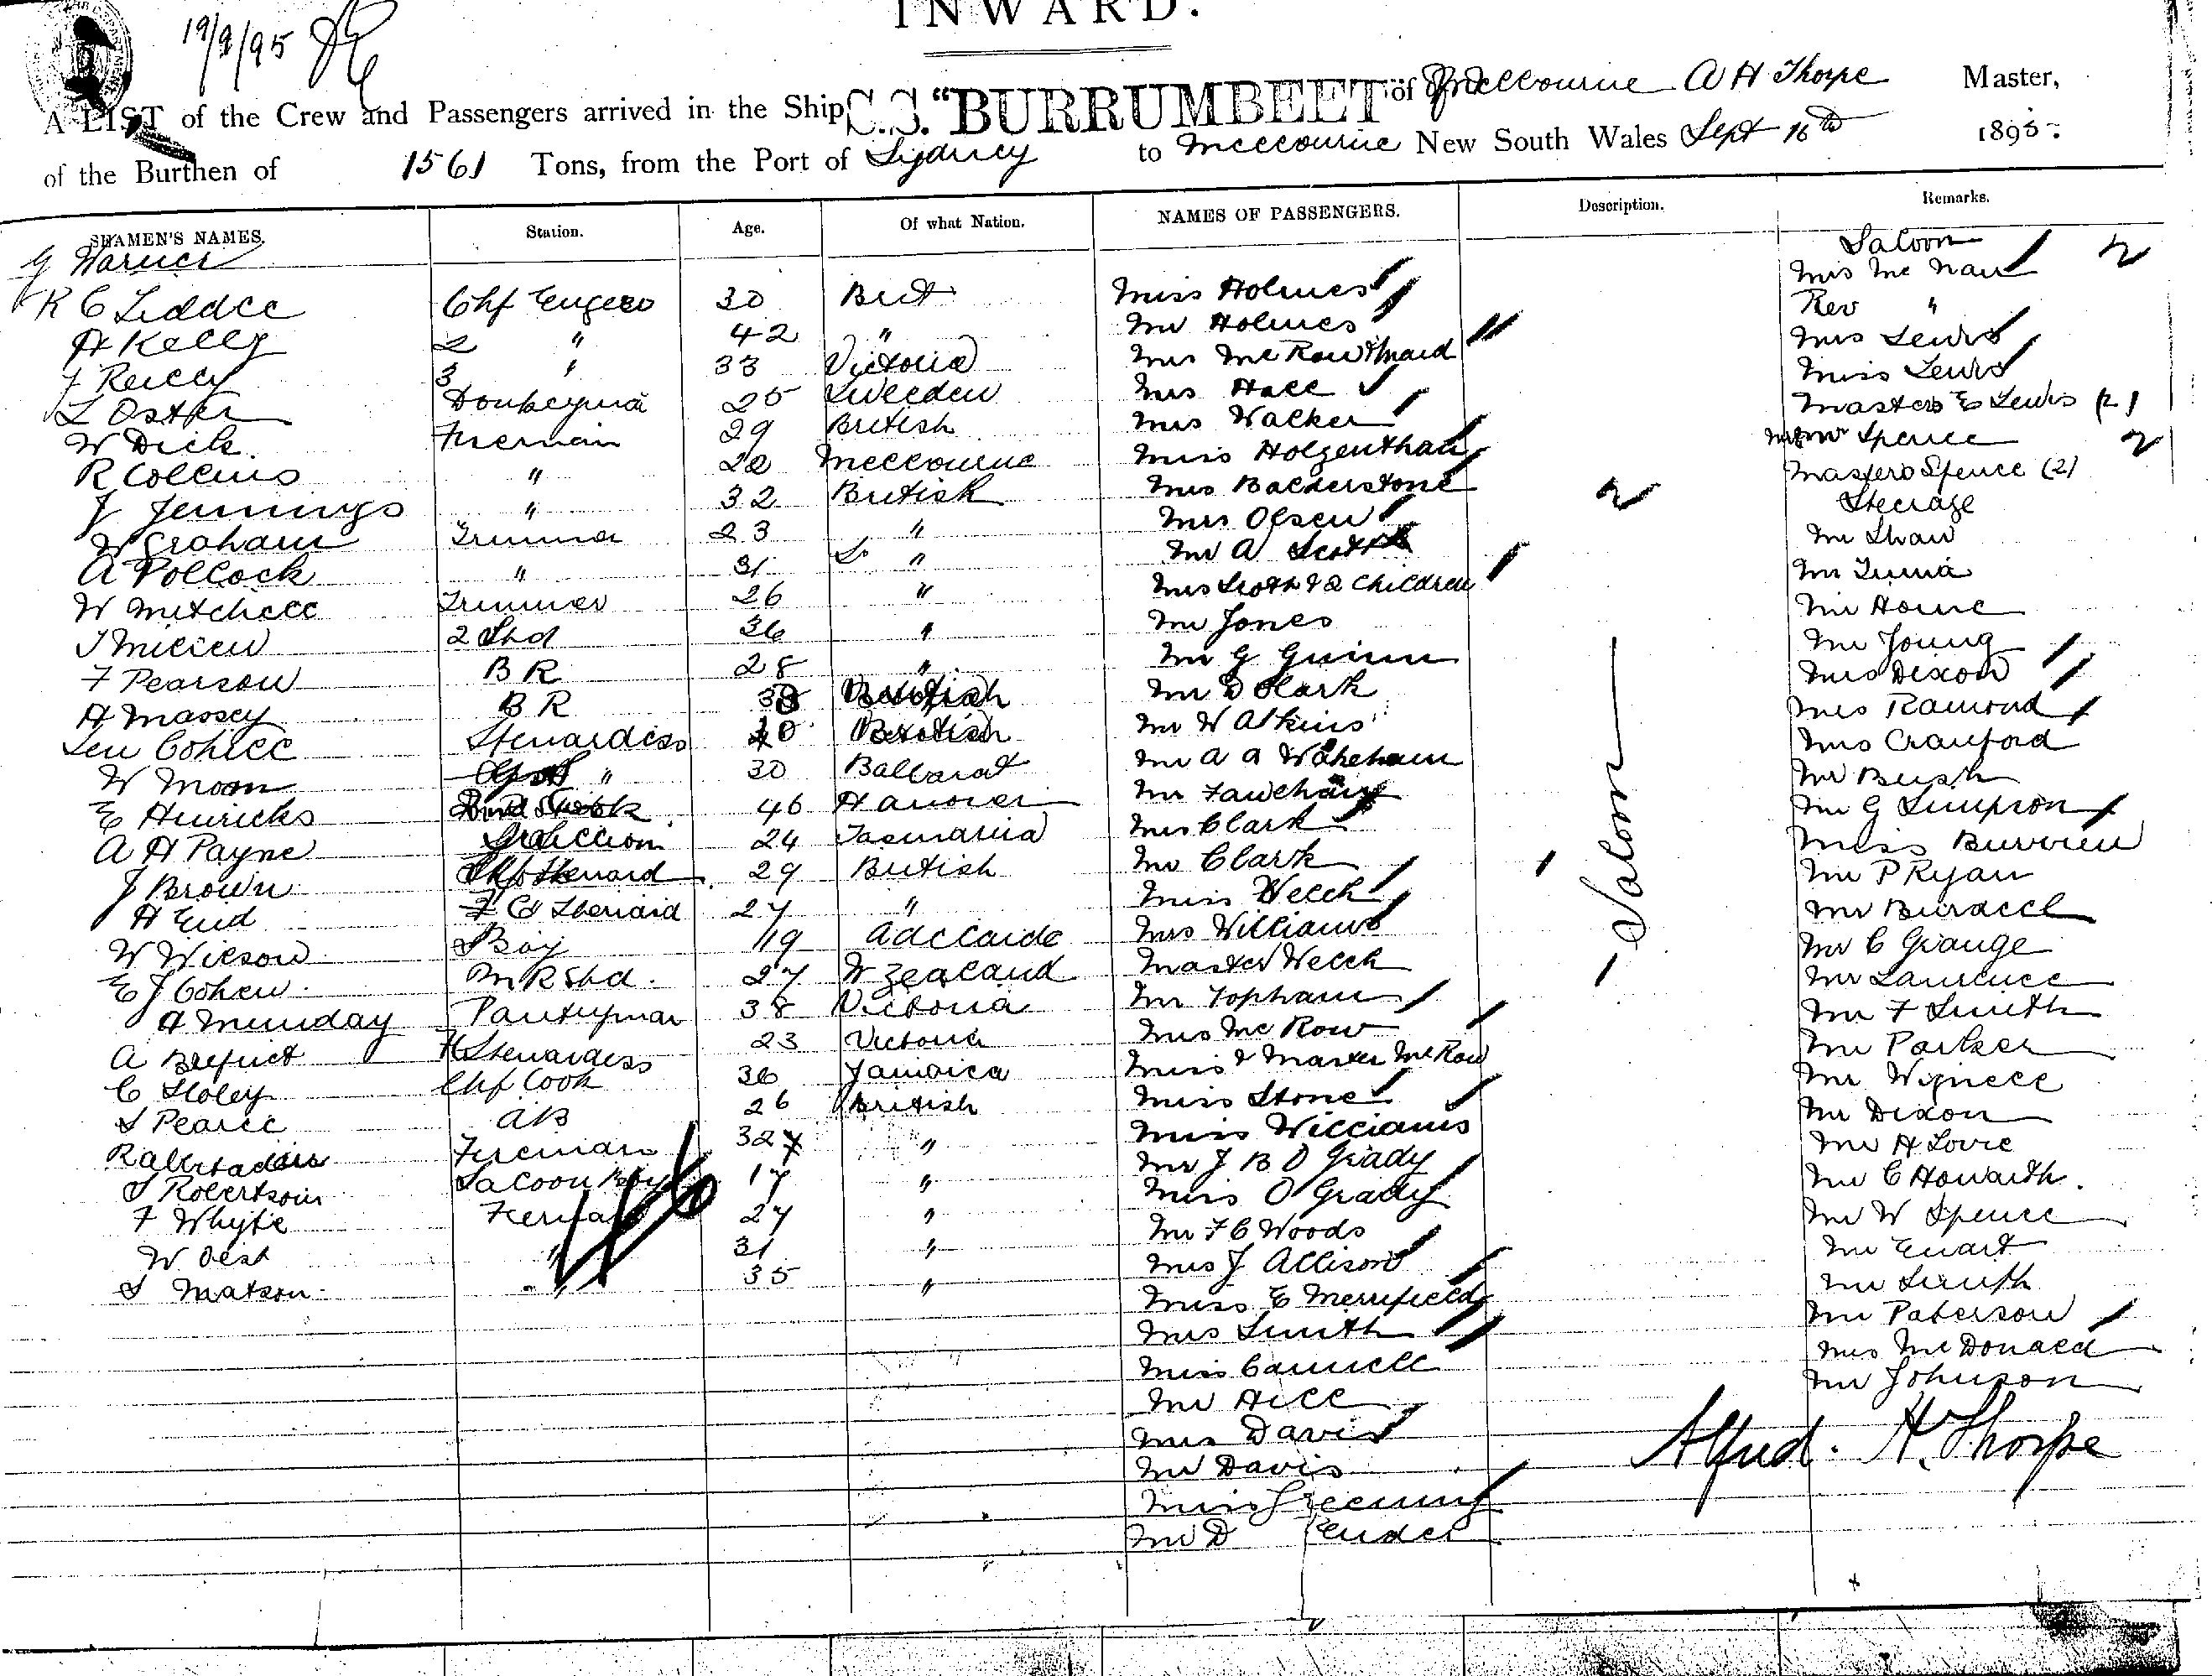 INWARD.
19/9/95
A LIST of the Crew and Passengers arrived in the Ship S.S. "BURRUMBEET" of Melbourne A H Thorpe Master,
of the Burthen of 1561 Tons, from the Port of Sydney to Melbourne New South Wales Sept 16th 1895.
SEAMEN'S NAMES. Station. Age. Of what Nation. NAMES OF PASSENGERS. Description. Remarks.
G Warner Saloon
R C Liddle Chf Engeer 30 Brit Miss Holmes Mrs Mc Nair 2
A Kelly 2 " 42 " Mr Holmes Rev "
F Reilly 3 " 33 Victoria Mrs Mc Row & Maid Mrs Lewis
L Oster Donkeyman 25 Sweeden Mrs Hall Miss Lewis
W Dick Fireman 29 British Mrs Walker Masters E Lewis (2)
R Collins " Melbourne Miss Holgenthan Mr Spence 2
J Jennings " 32 British Mrs Balderstone Masters Spence (2)
W Graham Trimmer 23 " Mrs Olsen 2 Steerage
A Pollock " 31 " Mr A Scott Mr Shaw
W Mitchell Trimmer 26 " Mrs Scott & 2 Children Mr
2 Std 36 " Mr Jones Mr Horne
F Pearson B R 28 " Mr G Guinn Mr Young
A Massey B R 38 British Mr D Clark Mrs Dixon
Len Cohill Stewardess British Mr W Atkins Mrs Ramond
W Moon " 30 Ballarat Mr A A Wakeham Mrs Crauford
E Hinricks 46 Hanover Mr Mr Bush
A H Payne 24 Tasmania Mrs Clark Saloon Mr G Simpson
J Brown Chf Steward 29 British Mr Clark Miss
A End F C Steward 27 " Miss Welch Mr P Ryan
W Wilson Boy 19 Adelaide Mrs Williams Mr
E J Cohen M R Std. 27 N Zealand Master Welch Mr C Grange
A Munday Pantryman 38 Victoria Mr Topham Mr Laurence
A Stewardess 23 Victoria Mrs Mc Row Mr F Smith
C Sloley Chf Cook 36 Jamaica Miss & Master Mc Row Mr Parker
S Pearce AB 26 British Miss Stone Mr
Fireman 32 " Miss Williams Mr Dixon
S Robertson Saloon Boy 17 " Mr J B O Grady Mr H Love
F Whyte Fireman 27 " Miss O Grady Mr C Howarth.
W " 31 " Mr F C Woods Mr W Spence
S Matson " 35 " Mrs J Allison Mr Ewart
Miss E Merrifield Mr Smith
Mrs Smith Mr Paterson
Miss Cannell Mrs Mc Donald
Mr Hill Mr Johnson
Mrs Davis Alfred. H. Thorpe
Mr Davis
Miss
Mr D